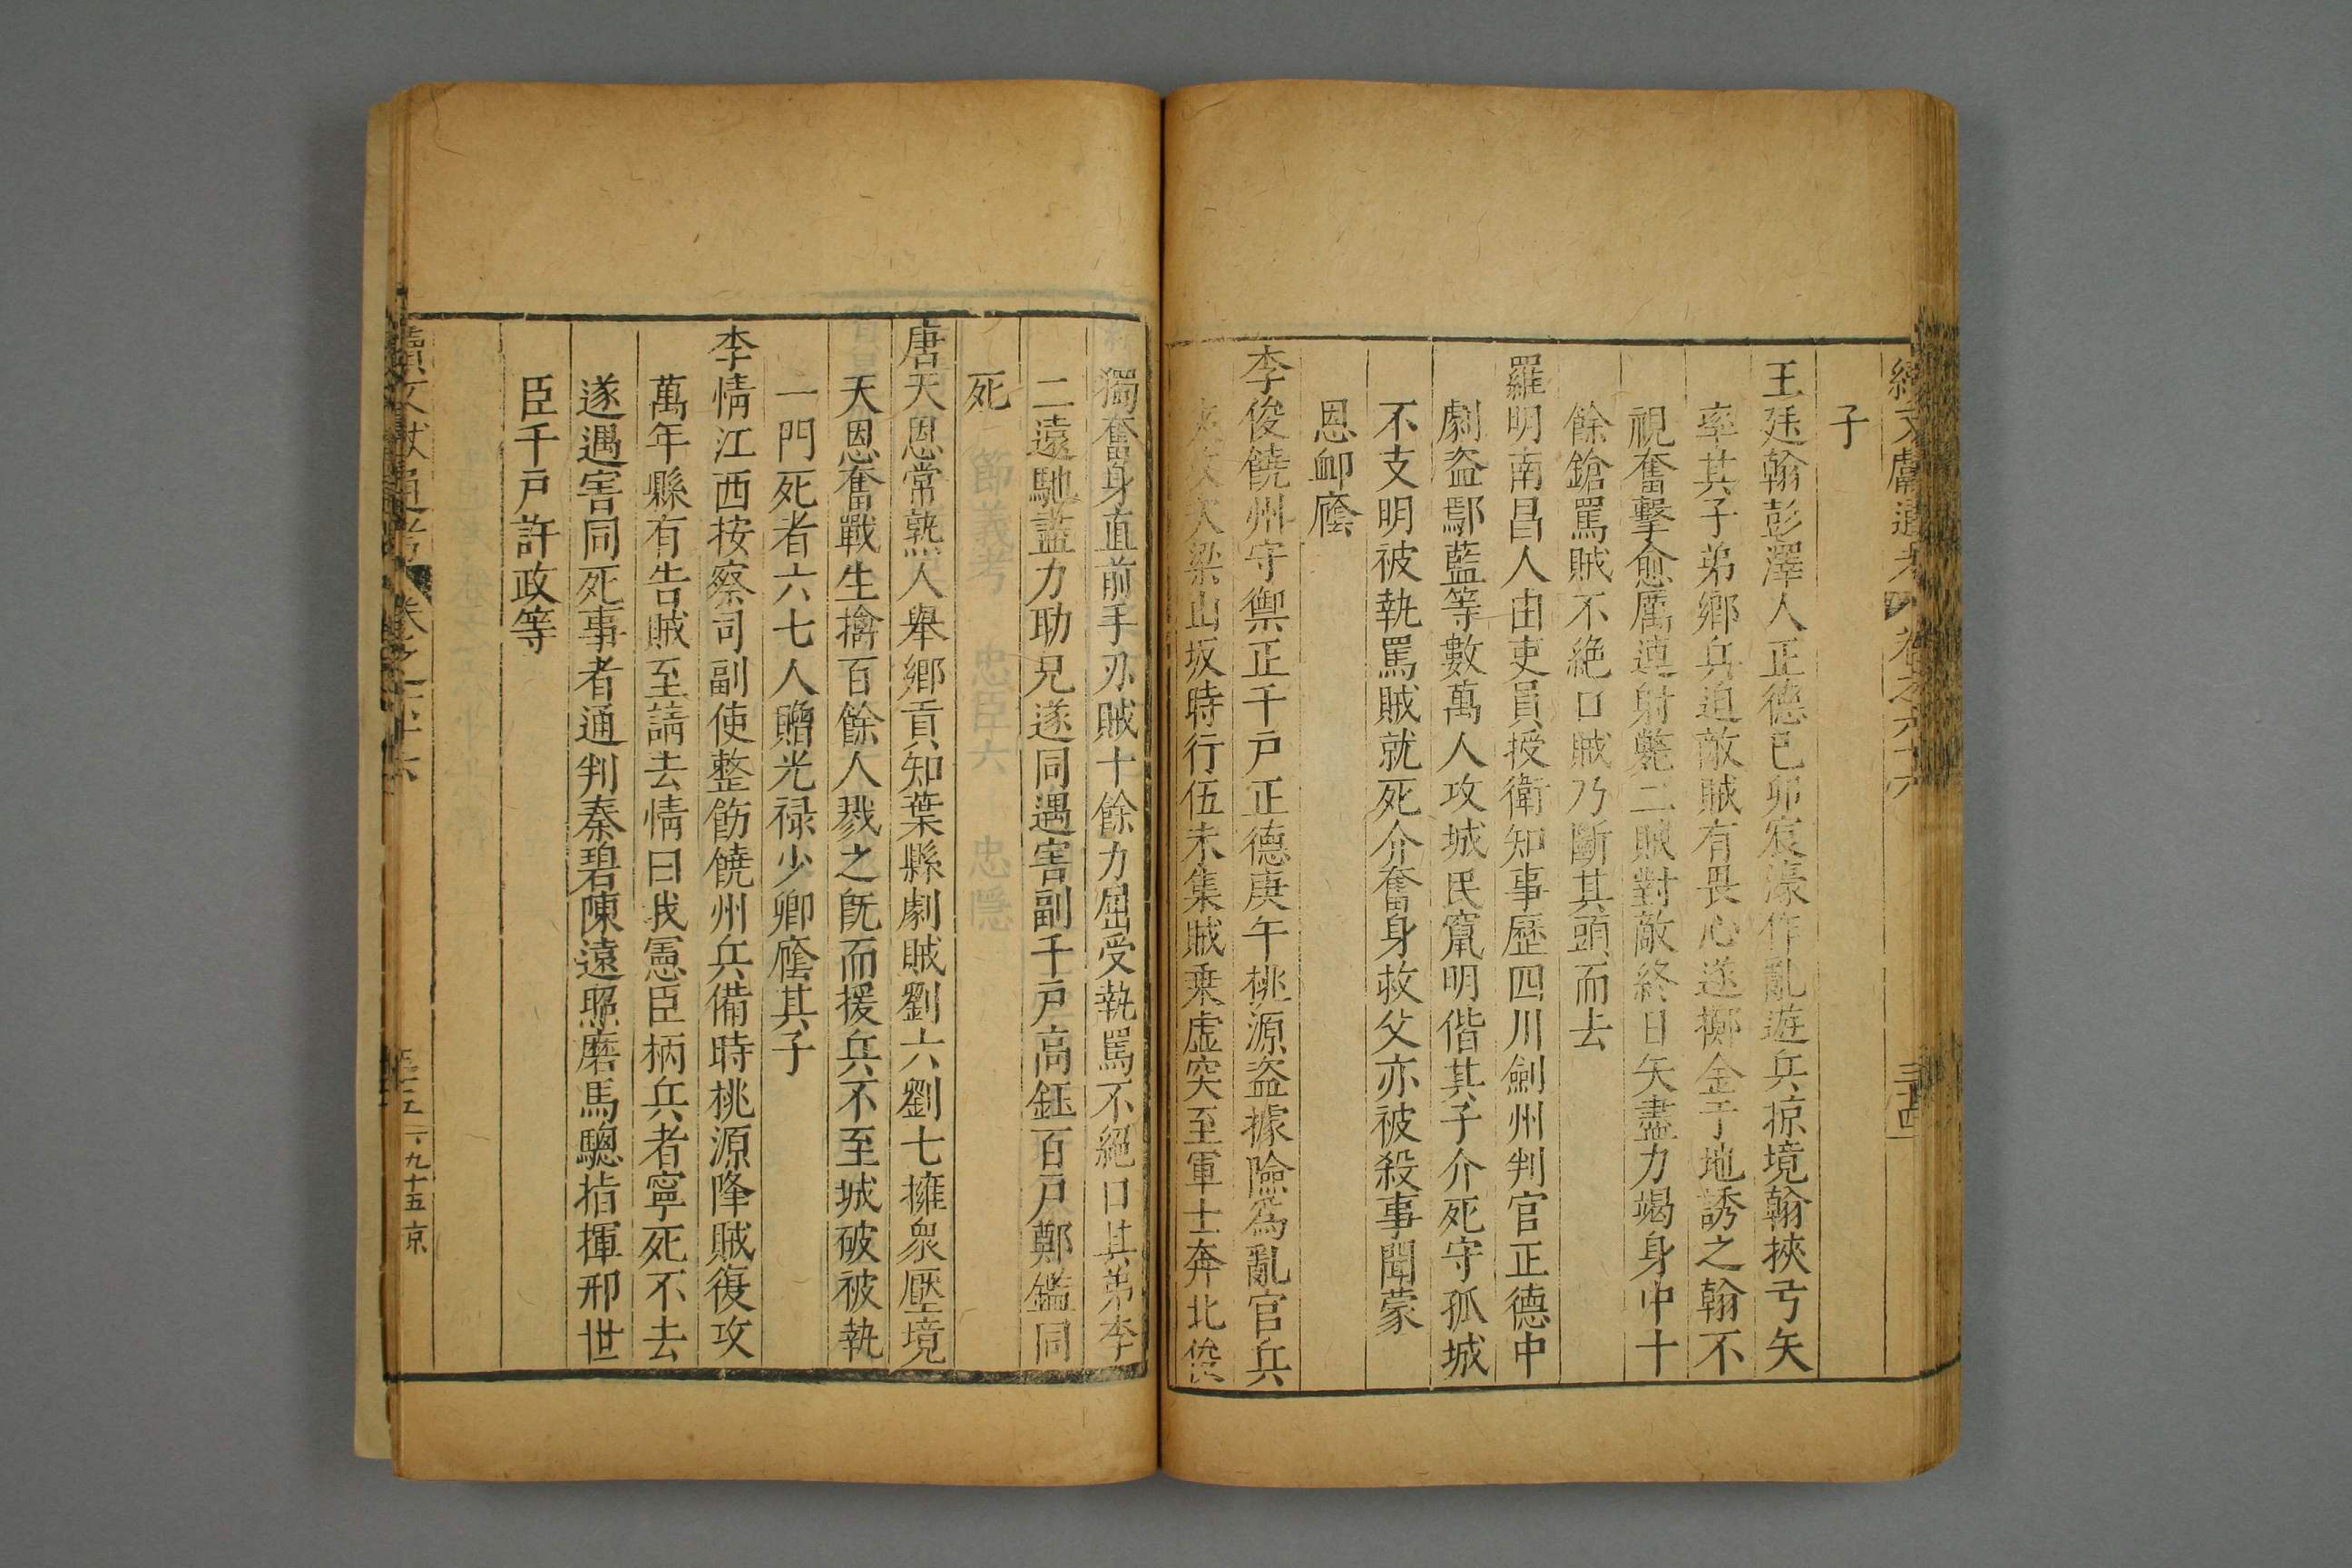 續文獻通考 卷之六十六 三十四
子
王廷翰彭澤人正德己卯宸濠作亂遊兵掠境翰挾弓矢
率其子弟鄉兵迫敵賊有畏心遂擲金于地誘之翰不
視奮擊愈厲連射斃二賊對敵終日矢盡力竭身中十
餘鎗罵賊不絶口賊乃斷其頭而去
羅明南昌人由吏員授衛知事歷四川劍州判官正德中
劇盜鄢藍等數萬人攻城民竄明偕其子介死守孤城
不支明被執罵賊就死介奮身救父亦被殺事聞蒙
恩卹廕
李俊饒州守禦正千戸正德庚午桃源盜據險爲亂官兵
夾攻大梁山坂時行伍未集賊乗虛突至軍士奔北俊
獨奮身直前手刃賊十餘力屈受執罵不絕口其弟李
二遠馳盡力助兄遂同遇害副千戸高鈺百戸鄭鑑同
死
唐天恩常熟人舉鄉貢知葉縣劇賊劉六劉七擁衆壓境
天恩奮戰生擒百餘人戮之旣而援兵不至城破被執
一門死者六七人贈光禄少卿廕其子
李情江西按察司副使整飭饒州兵備時桃源降賊復攻
萬年縣有告賊至請去情曰我憲臣柄兵者寧死不去
遂遇害同死事者通判秦碧陳遠照磨馬驄指揮邢世
臣千戸許政等
續文獻通考 卷之六十六 九十五京